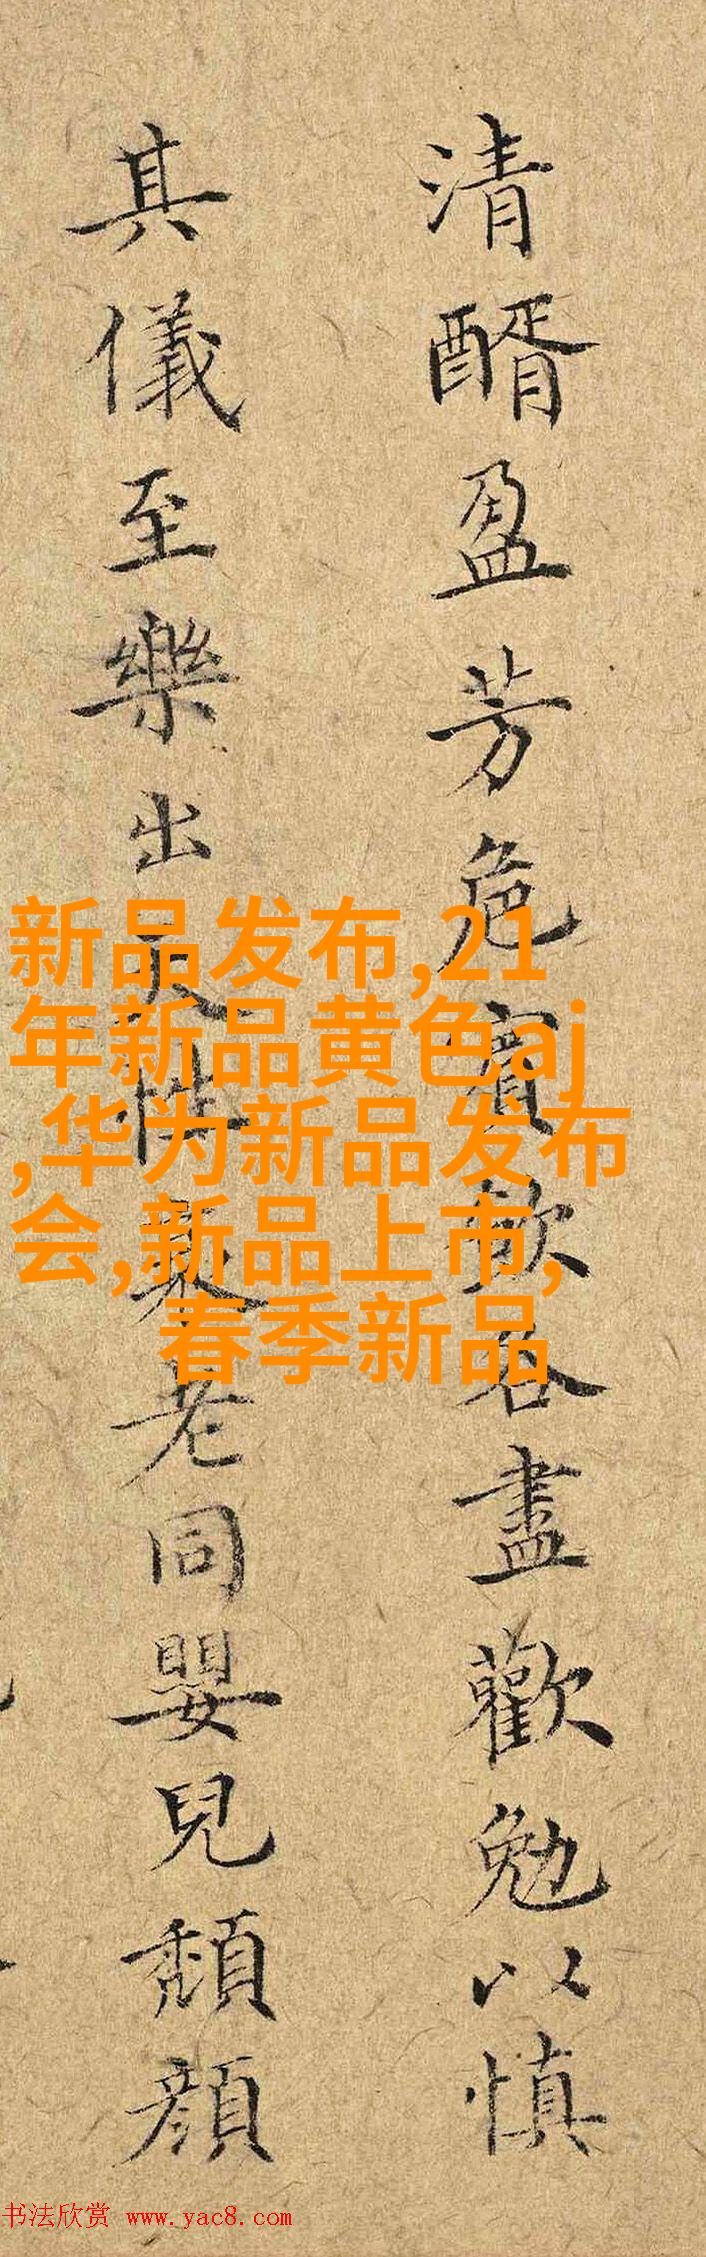 清醑盈芳巵賓飲各盡歡勉以慎
其儀至樂出天性衰老同嬰兒頽顏
新品发布,21
年新品黄色aj
,华为新品发布
会,新品上市,
春季新品
书法欣赏 www.yac8.com